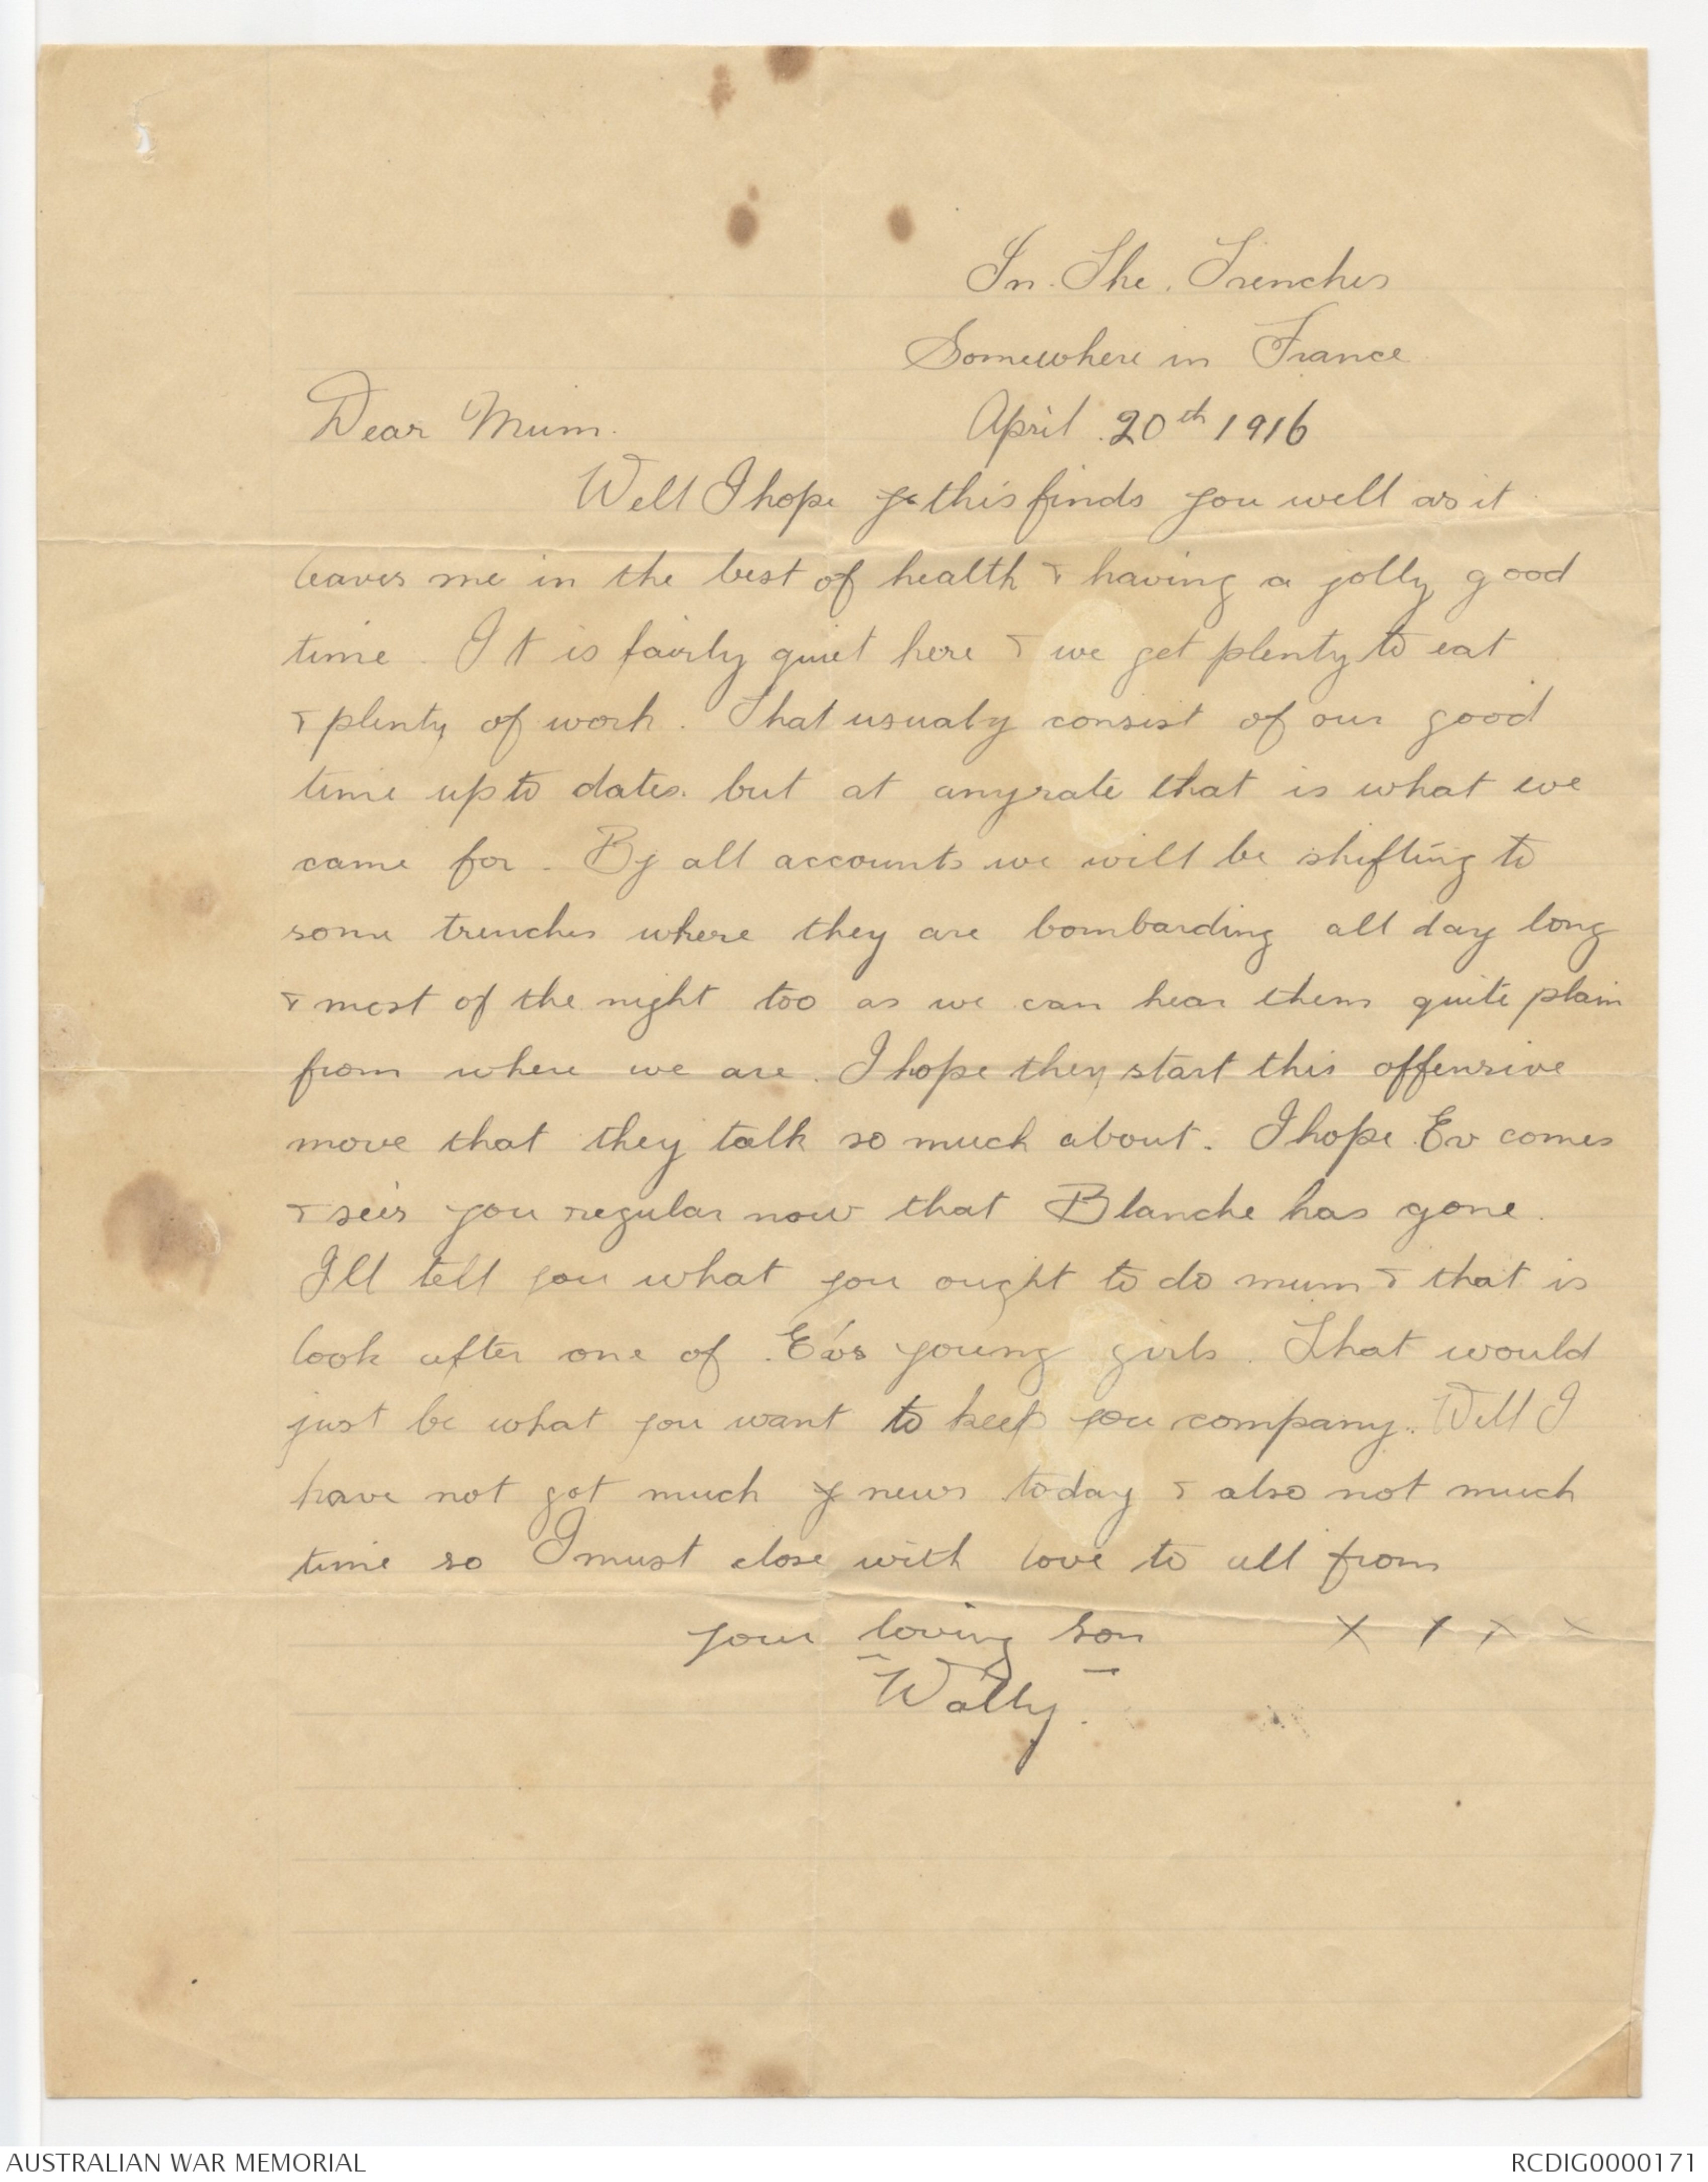 In The Trenches
Somewhere in France
Dear Mum. April 20th 1916
Well I hope this finds you well as it
leaves me in the best of health & having a jolly good
time. It is fairly quiet here & we get plenty to eat
& plenty of work. That usualy consist of our good
time up to date. but at anyrate that is what we
came for. By all accounts we will be shifting to
some trenches where they are bombarding all day long
& most of the night too as we can hear them quite plain
from where we are. I hope they start this offensive
move that they talk so much about. I hope Ev comes
& sees you regular now that Blanche has gone.
Ill tell you what you ought to do mum & that is
look after one of Ev's young girls. That would
just be what you want to keep you company. Well I
have not got much news today & also not much
time so I must close with love to all from
your loving son x x x x
"Wally".
AUSTRALIAN WAR MEMORIAL RCDIG0000171